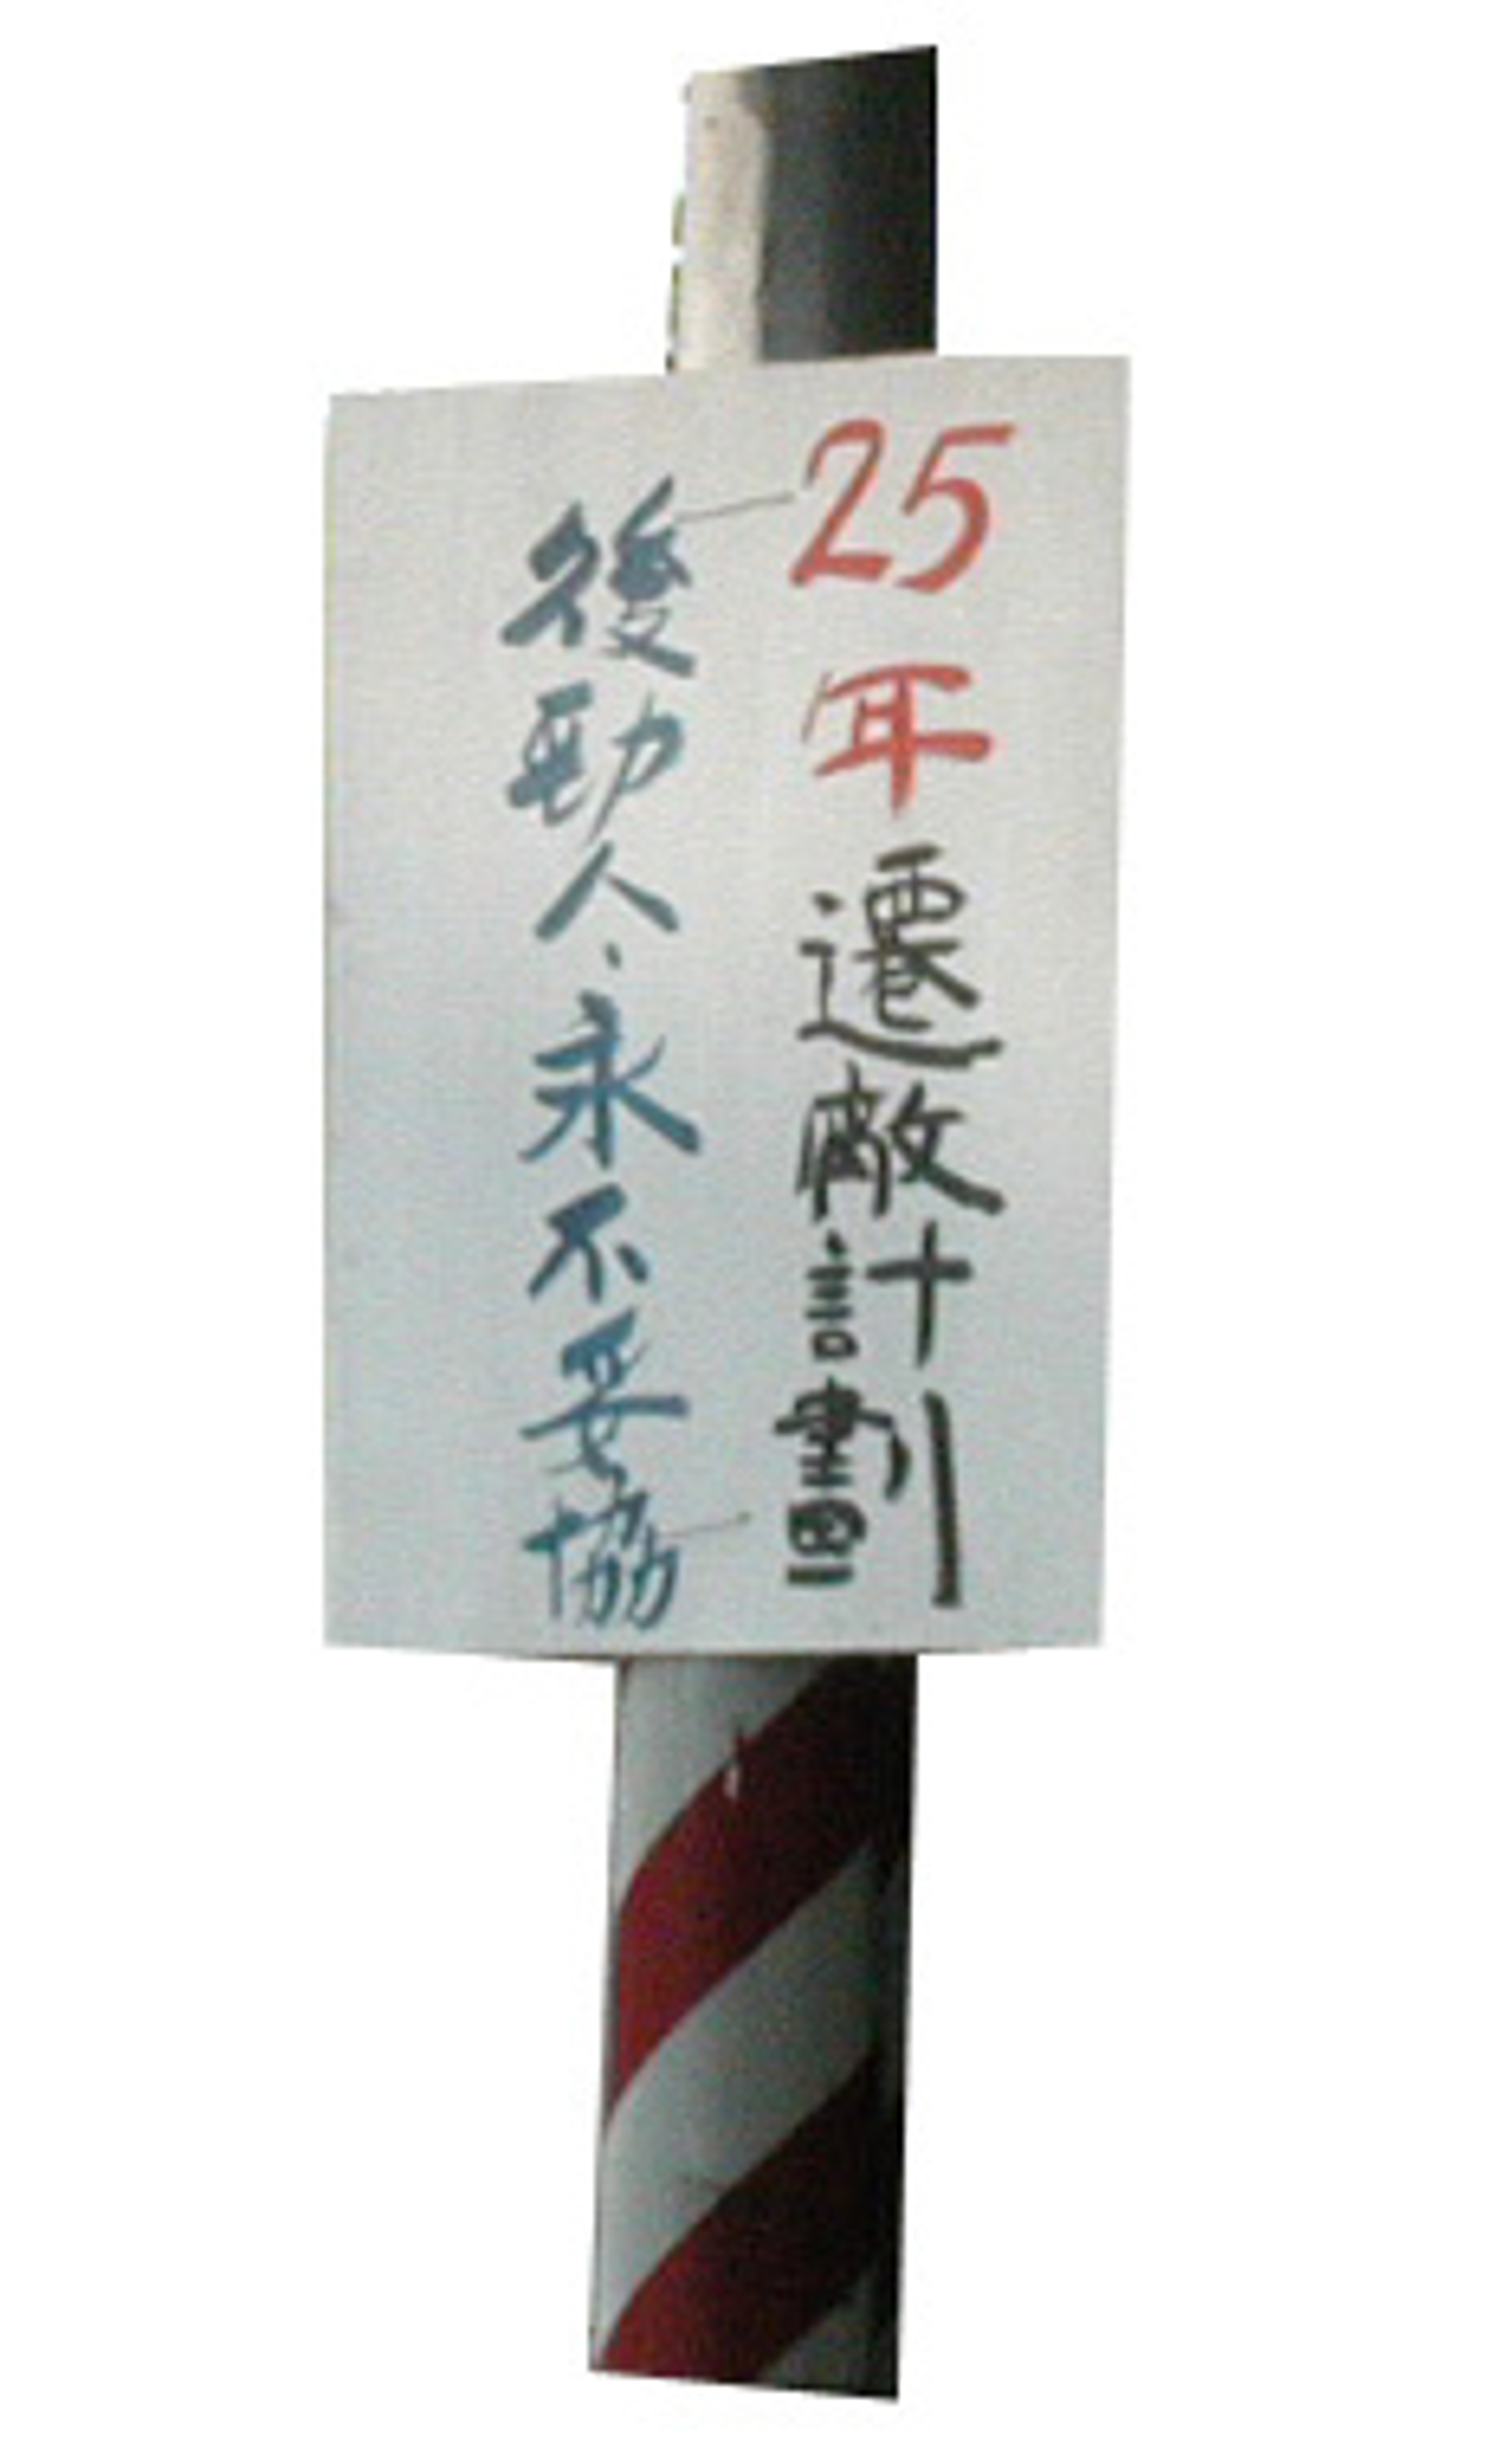 25年遷廠計劃
後勁人、永不妥協